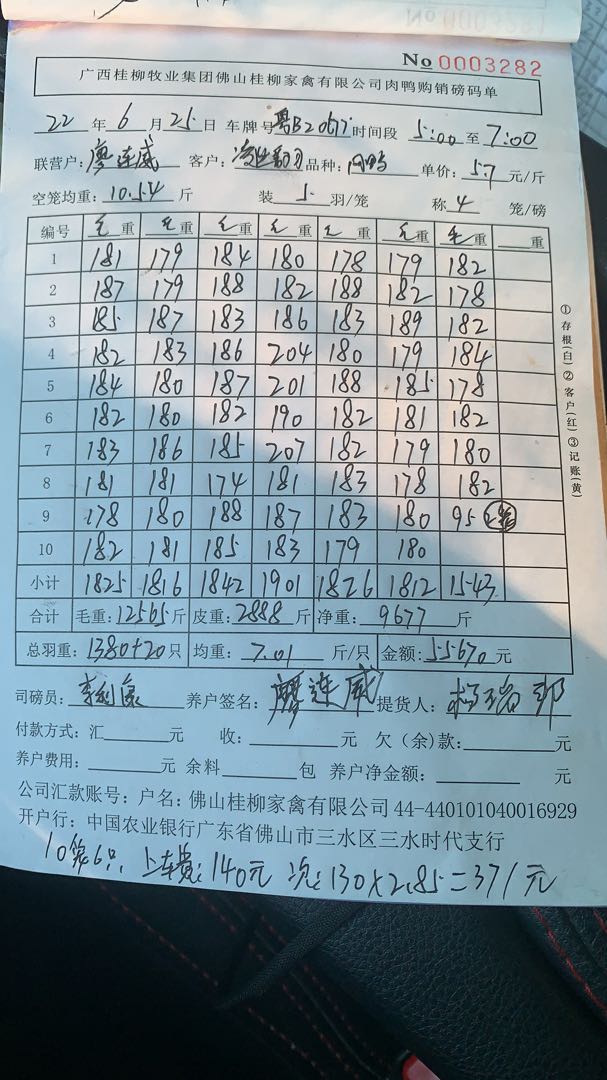 No 0003282
广西桂柳牧业集团佛山桂柳家禽有限公司肉鸭购销磅码单
22 年 6 月 25 日 车牌号 时间段 5:00 至 7:00
联营户: 廖连威 客户: 品种: 肉鸭 单价: 5.7 元/斤
空笼均重: 10.54 斤 装 5 羽/笼 称 4 笼/磅
编号 毛重 毛重 毛重 毛重 毛重 毛重 毛重 重
1 181 179 184 180 178 179 182
2 187 179 188 182 188 182 178
3 185 187 183 186 183 189 182
4 182 183 186 204 180 179 184
5 184 180 187 201 188 185 178
6 182 180 182 190 182 181 182
7 183 186 185 207 182 179 180
8 181 181 174 181 183 178 182
9 178 180 188 187 183 180 95
10 182 181 185 183 179 180
小计 1825 1816 1842 1901 1826 1812 1543
合计 毛重: 12565 斤 皮重: 2888 斤 净重: 9677 斤
总羽重: 1380+20 只 均重: 7.01 斤/只 金额: 55670 元
司磅员: 养户签名: 廖连威 提货人:
付款方式: 汇 元 收: 元 欠(余)款: 元
养户费用: 元 余料 包 养户净金额: 元
公司汇款账号: 户名: 佛山桂柳家禽有限公司 44-440101040016929
开户行: 中国农业银行广东省佛山市三水区三水时代支行
10笼6只 上车费: 140元 次: 130×2.85=371元
①存根(白)②客户(红)③记账(黄)